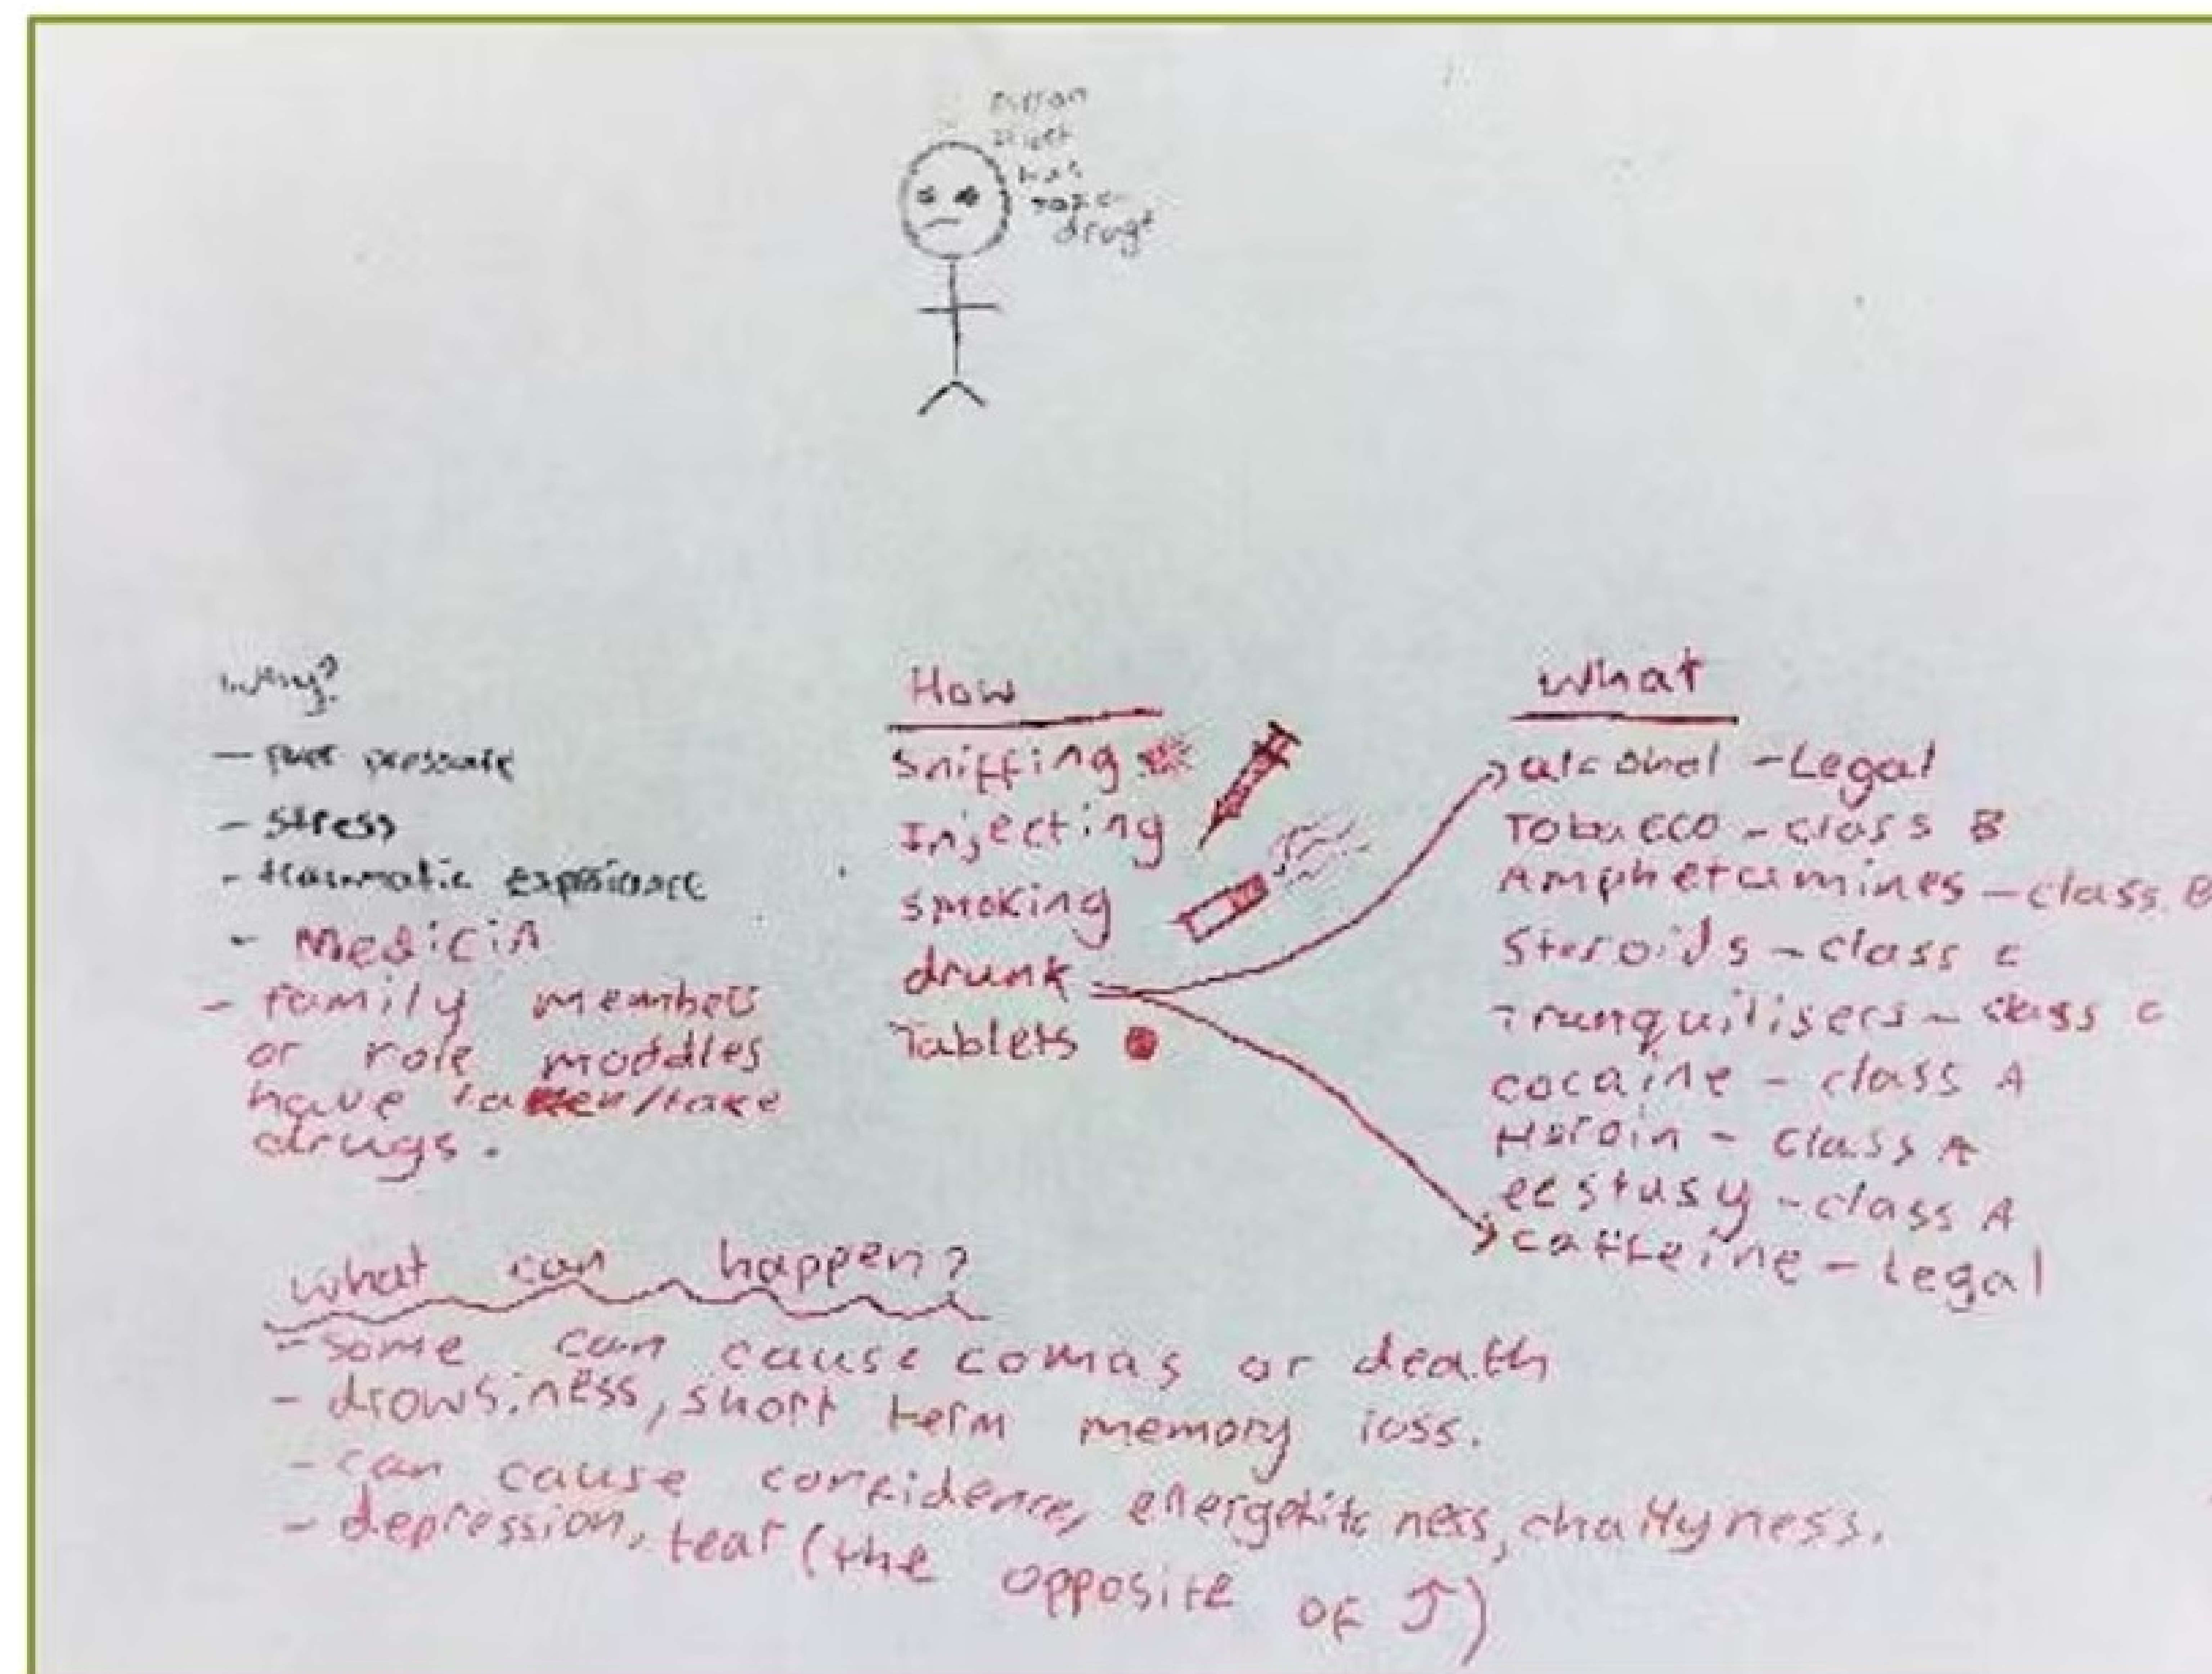 drugs
Why?
- peer pressure
- stress
- traumatic experience
- Medicin
- family members
or role moddles
have taken/take
drugs.
How
Sniffing
Injecting
smoking
drunk
Tablets
What
alcohol - Legal
Tobacco - class B
Amphetamines - class B
Steroids - class c
Tranquilisers - class c
cocaine - class A
Heroin - class A
ecstasy - class A
caffeine - Legal
What can happen?
- some can cause comas or death
- drowsiness, short term memory loss.
- can cause confidence, energetic ness, chattyness.
- depression, fear (the opposite of ↑)